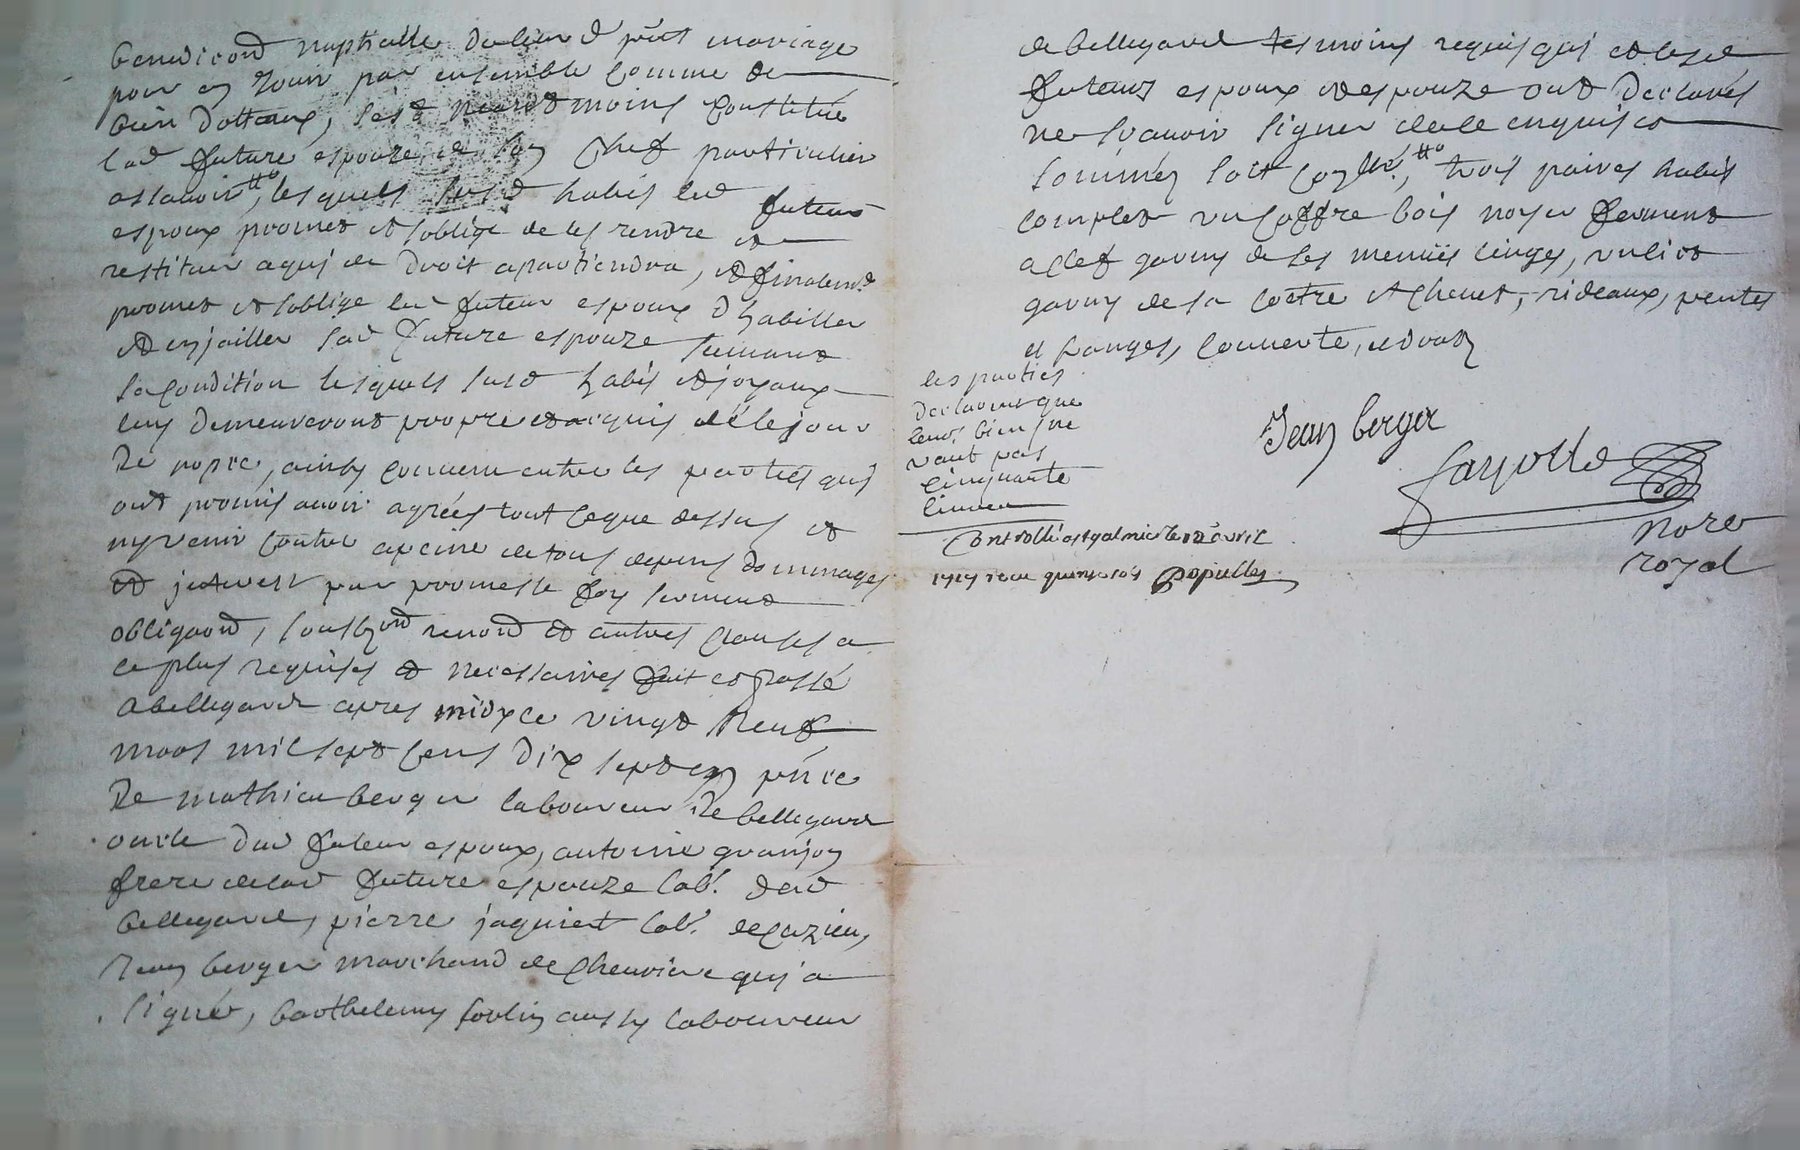 benediçõn nuptialle du lieu d pñt mariage
pour en Jouir par ensemble comme de
bien dottaux, sest neantmoins constitué
lad future espouze de son chef particulier
assavoir, lesquels susd habis led futeur
espoux promet et soblige de les rendre et
restituer a qui de droit apartiendra, et finalem.t
promet et soblige led futeur espoux d habiller
et enjailler lad future espouze suivant
sa condition lesquels susd habis et joyaux
luy demeureront propre et acquis dé le jour
de nopce, ainsy convenu entre les parties quj
ont promis avoir agrées tout ceque dessus et
ny venir contre a peine de tous depens dommages
et jnterest par promesse foy serment
obligaõn, soubzõn renõn et autres clauses a
ce plus requises et necessaires fait et passé
a bellegarde apres midy ce vingt neuf
mars mil sept cens dix sept en pñce
de mathieu berger laboureur de bellegarde
oncle dud futeur espoux, antoine granjon
frere delad future espouze lab.r dud
bellegarde, pierre jaquiert lab.r de cuzieu,
Jean berger marchand de chevriere quj a
signé, barthelemy soulin aussy laboureur
de bellegarde tesmoins requis quj et lesd
futeurs espoux et espouze ont declarés
ne scavoir signer de ce enquis et
sommés soit con.llé, trois paires habis
complet un coffre bois noyer fermant
a clef garny de ses menues linges, un lict
garny de sa coetre et chevet, rideaux, pentes
et franges, couverte, et drats
les parties
declarent que
leurs bien ne
vaut pas
cinquante
livres
Controllé a st galmier le 12 avril
1717 receu quinze sols Popullez
Jean berger
Jayolle
nore
royal